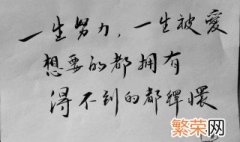 一生努力，一生被愛
想要的都拥有
得不到的都釋懷
繁荣网